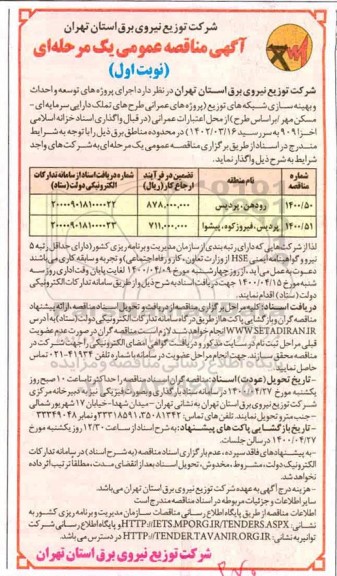 شرکت توزیع نیروی برق استان تهران
آگهی مناقصه عمومی یک مرحله‌ای
(نوبت اول)
شرکت توزیع نیروی برق استان تهران در نظر دارد اجرای پروژه های توسعه و احداث
و بهینه سازی شبکه های توزیع (پروژه های عمرانی طرح های تملک دارایی سرمایه ای -
مسکن مهر / براساس طرح) از محل اعتبارات عمرانی (در قبال واگذاری اسناد خزانه اسلامی
اخزا ۹۰۹ به سررسید ۱۴۰۲/۰۳/۱۶) در محدوده مناطق برق ذیل را با توجه به شرایط
مندرج در اسناد از طریق برگزاری مناقصه عمومی یک مرحله ای به شرکت های واجد
شرایط به شرح ذیل واگذار نماید.
شماره مناقصه | نام منطقه | تضمین در فرآیند ارجاع کار (ریال) | شماره دریافت اسناد از سامانه تدارکات الکترونیکی دولت (ستاد)
۱۴۰۰/۵۰ | رودهن، پردیس | ۸۷۸,۰۰۰,۰۰۰ | ۲۰۰۰۰۹۰۱۸۱۰۰۰۰۲۲
۱۴۰۰/۵۱ | پردیس، فیروزکوه، پیشوا | ۷۱۱,۰۰۰,۰۰۰
لذا از شرکت هایی که دارای رتبه بندی از سازمان مدیریت و برنامه ریزی کشور (دارای حداقل رتبه ۵
نیرو و گواهینامه ایمنی HSE از وزارت تعاون، کار و رفاه اجتماعی) و تجربه و سابقه کاری می باشند
دعوت به عمل می آید، از روز چهارشنبه مورخ ۱۴۰۰/۰۴/۰۹ لغایت پایان وقت اداری روز سه
شنبه مورخ ۱۴۰۰/۰۴/۱۵ جهت دریافت اسناد به شرح ذیل و از طریق سامانه تدارکات الکترونیکی
دولت (ستاد) اقدام نمایند.
دریافت اسناد: کلیه مراحل برگزاری مناقصه از دریافت و تحویل اسناد مناقصه، ارائه پیشنهاد
مناقصه گران و بازگشایی پاکت ها از طریق درگاه سامانه تدارکات الکترونیکی دولت (ستاد) به آدرس
WWW.SETADIRAN.IR انجام خواهد شد. لازم است مناقصه گران در صورت عدم عضویت
قبلی مراحل ثبت نام در سایت مذکور و دریافت گواهی امضای الکترونیکی را جهت شرکت در
مناقصه محقق سازند. جهت انجام مراحل عضویت در سامانه با شماره تلفن ۴۱۹۳۴-۰۲۱ تماس
حاصل نمایید.
- تاریخ تحویل (عودت) اسناد: مناقصه گران باید اسناد مناقصه را حداکثر تا ساعت ۱۰ صبح روز
یکشنبه مورخ ۱۴۰۰/۰۴/۲۷ در سامانه ستاد بارگذاری و بصورت فیزیکی نیز به دبیرخانه مرکزی
شرکت توزیع نیروی برق استان تهران به نشانی تهران - میدان شهدا - خیابان ۱۷ شهریور شمالی
- جنب مترو تحویل نمایند. تلفن های تماس: ۳۵۰۸۱۳۴۲، ۳۳۳۱۸۵۹۱ نمابر ۳۳۳۴۹۰۴۸
- تاریخ بازگشایی پاکت های پیشنهاد: به شرح اسناد از ساعت ۱۲:۳۰ روز یکشنبه مورخ
۱۴۰۰/۰۴/۲۷ در سالن جلسات.
- به پیشنهادهای فاقد سپرده، عدم بارگزاری اسناد مناقصه (به شرح اسناد) در سامانه تدارکات
الکترونیک دولت، مشروط، مخدوش، تحویل اسناد بعد از انقضای مدت، مطلقا ترتیب اثر داده
نخواهد شد.
- هزینه درج آگهی به عهده شرکت توزیع نیروی برق استان تهران می باشد.
سایر اطلاعات و جزئیات مربوطه در اسناد مناقصه مندرج است
اطلاعات مناقصه از طریق پایگاه اطلاع رسانی مناقصات سازمان مدیریت و برنامه ریزی کشور به
نشانی: HTTP://IETS.MPORG.IR/TENDERS.ASPX و پایگاه اطلاع رسانی شرکت
توانیر به نشانی: HTTP://TENDER.TAVANIR.ORG.IR در دسترس می باشد.
شرکت توزیع نیروی برق استان تهران